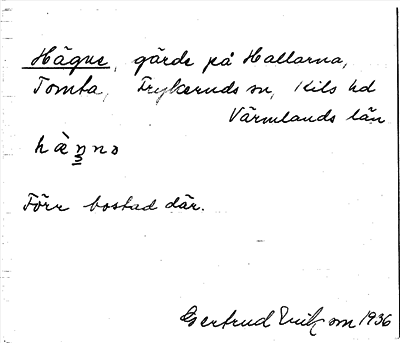 Hägne, gärde på Hallarna,
Tomta, Frykeruds sn, Kils hd
Värmlands län
Förr bostad där.
Gertrud Eriksson 1936